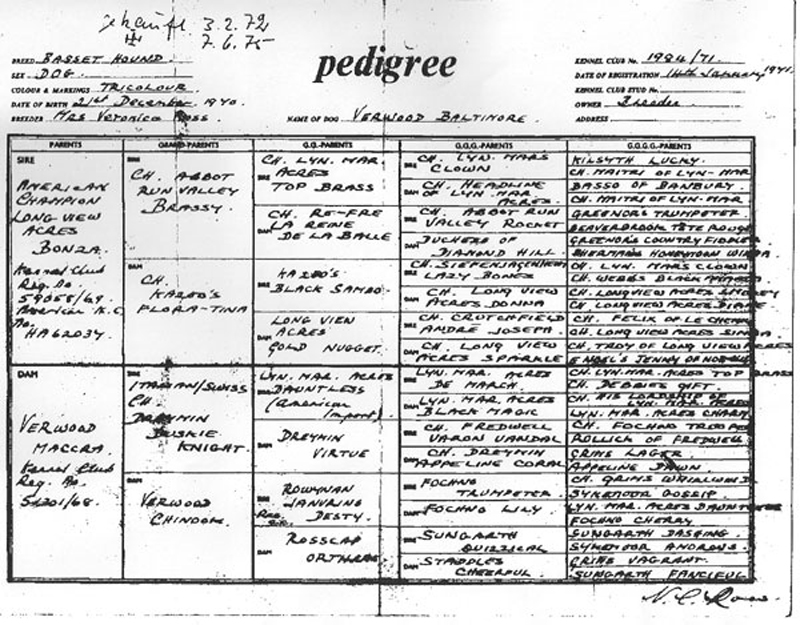 gekauft 3.2.72
7.6.75
pedigree
BREED BASSET HOUND.
SEX DOG.
COLOUR & MARKINGS TRICOLOUR.
DATE OF BIRTH 21st December 1970.
BREEDER MRS Veronica Ross.
NAME OF DOG VERWOOD BALTIMORE.
KENNEL CLUB No. 1984/71.
DATE OF REGISTRATION 14th January, 1971.
KENNEL CLUB STUD No.
OWNER Breeder
ADDRESS
PARENTS
GRAND-PARENTS
G.G.-PARENTS
G.G.G.-PARENTS
G.G.G.G.-PARENTS
SIRE
AMERICAN
CHAMPION
LONG VIEW
ACRES
BONZA.
Kennel Club
Reg. No.
59058/69.
American K.C.
No.
HA62037.
SIRE
CH. ABBOT
RUN VALLEY
BRASSY.
DAM
CH.
KAZOO'S
FLORA-TINA
SIRE
CH. LYN. MAR.
ACRES
TOP BRASS
DAM
CH. RE-FRE
LA REINE
DE LA BALLE
SIRE
KAZOO'S
BLACK SAMBO.
DAM
LONG VIEW
ACRES
GOLD NUGGET.
SIRE CH. LYN. MARS
CLOWN
DAM CH. HEADLINE
OF LYN. MAR
ACRES.
SIRE CH. ABBOT RUN
VALLEY ROCKET
DAM DUCHESS OF
DIAMOND HILL.
SIRE CH. SIEFENJAGENHEIM
LAZY BONES
DAM CH. LONG VIEW
ACRES DONNA
SIRE CH. CRUTCHFIELD
ANDRE JOSEPH.
DAM CH. LONG VIEW
ACRES SPARKLE
KILSYTH LUCKY.
CH. MAITRI OF LYN-MAR
BASSO OF BANBURY.
CH. MAITRI OF LYN-MAR
GREENOR'S TRUMPETER
BEAVERBROOK TETE ROUGE
GREENOR'S COUNTRY FIDDLER
SHERMAN'S HONEYMOON
CH. LYN. MARS CLOWN
CH. WEBB'S BLACK
CH. LONGVIEW ACRES SMOKEY
CH. LONGVIEW ACRES
CH. FELIX OF LE CHENE
CH. LONG VIEW ACRES
CH. TROY OF LONG VIEW ACRES
ENGEL'S JENNY OF
DAM
VERWOOD
MACCRA.
Kennel Club
Reg. No.
51201/68.
SIRE
ITALIAN/SWISS
CH.
DREYMIN
DUSKIE
KNIGHT.
DAM
VERWOOD
CHINOOK.
SIRE
LYN. MAR. ACRES
DAUNTLESS
(American
Import)
DAM
DREYMIN
VIRTUE
SIRE
ROWYNAN
JANVRINS
DESTY.
DAM
ROSSCAP
SIRE LYN. MAR. ACRES
DE MARCH.
DAM LYN. MAR. ACRES
BLACK MAGIC
SIRE CH. FREDWELL
VARON VANDAL
DAM CH. DREYMIN
APPELINE CORAL
SIRE FOCHNO
TRUMPETER
DAM FOCHNO LILY.
SIRE SUNGARTH
QUIZZICAL
DAM STADDLES
CHEERFUL.
CH. LYN. MAR. ACRES TOP BRASS
CH. DEBBIES GIFT.
CH. HIS LORDSHIP OF
LYN. MAR. ACRES
LYN. MAR. ACRES CHARM
CH. FOCHNO TROOPER
ROLLICK OF FREDWELL
GRIMS LAGER.
APPELINE DAWN
CH. GRIMS WHIRLWIND
SYKEMOOR GOSSIP.
LYN. MAR. ACRES DAUNTLESS
FOCHNO CHERRY
SUNGARTH DASHING.
SYKEMOOR
GRIMS VAGRANT.
SUNGARTH FANCIFUL